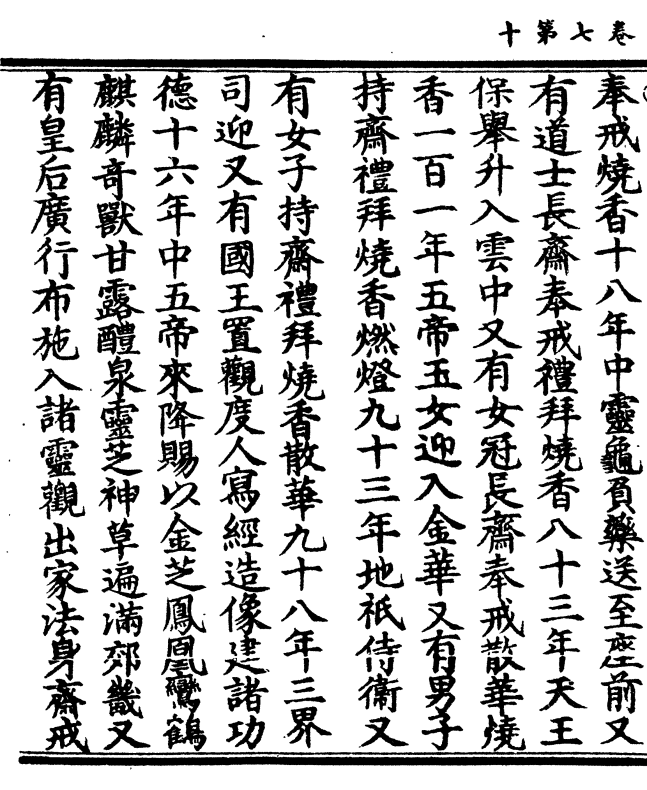 卷七第十
奉戒燒香十八年中靈龜負藥送至座前又
有道士長齋奉戒禮拜燒香八十三年天王
保舉升入雲中又有女冠長齋奉戒散華燒
香一百一年五帝玉女迎入金華又有男子
持齋禮拜燒香燃燈九十三年地祇侍衞又
有女子持齋禮拜燒香散華九十八年三界
司迎又有國王置觀度人寫經造像建諸功
德十六年中五帝來降賜以金芝鳳凰鸞鶴
麒麟奇獸甘露醴泉靈芝神草遍滿郊畿又
有皇后廣行布施入諸靈觀出家法身齋戒